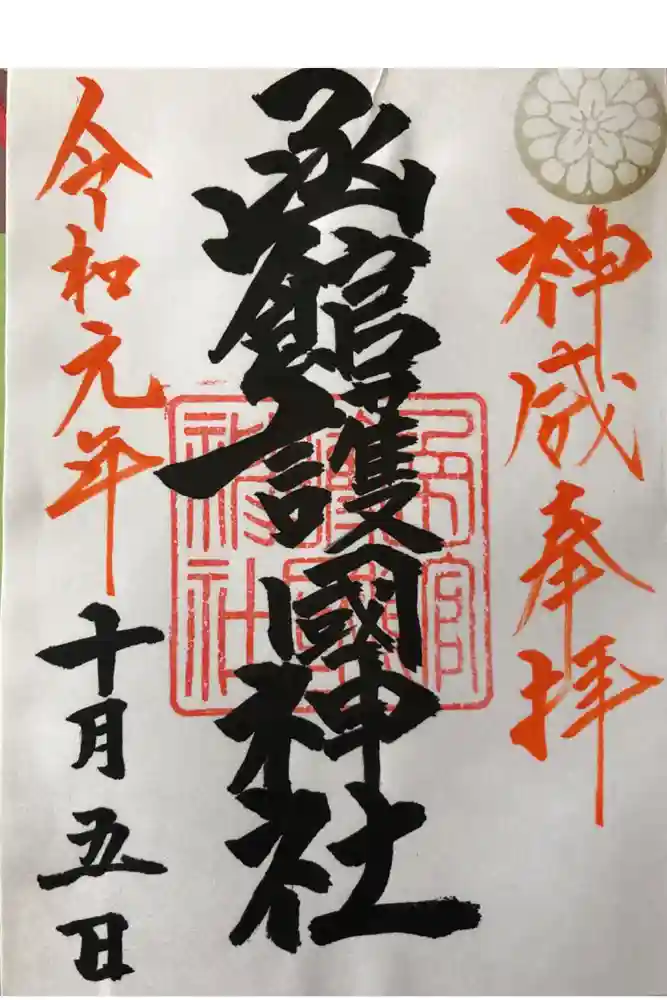 神威奉拝
函館護國神社
令和元年
十月五日
函館
護國
神社